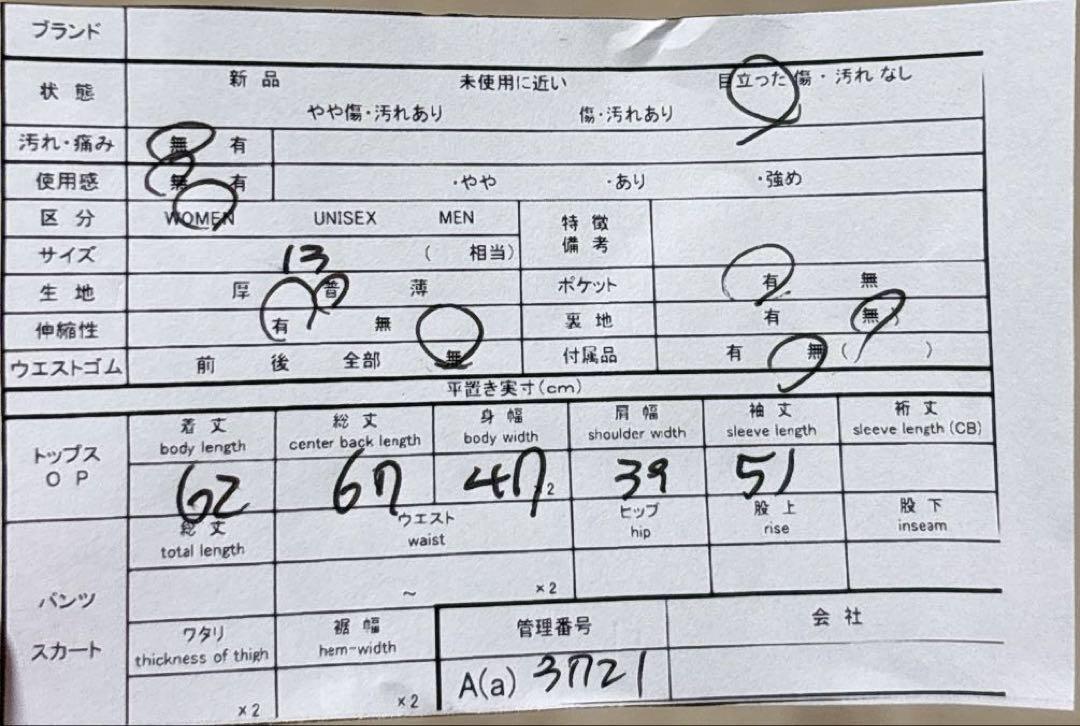 ブランド
状態 新品 未使用に近い 目立った傷・汚れなし
やや傷・汚れあり 傷・汚れあり
汚れ・痛み 無 有
使用感 無 有 ・やや ・あり ・強め
区分 WOMEN UNISEX MEN 特徴
備考
サイズ 13 ( 相当)
生地 厚 普 薄 ポケット 有 無
伸縮性 有 無 裏地 有 無 )
ウエストゴム 前 後 全部 無 付属品 有 無 ( )
平置き実寸(cm)
トップス
OP
着丈 総丈 身幅 肩幅 袖丈 裄丈
body length center back length body width shoulder wdth sleeve length sleeve length (CB)
62 67 47 2 39 51
総丈 ウエスト ヒップ 股上 股下
total length waist hip rise inseam
パンツ ~ ×2
スカート
ワタリ 裾幅 管理番号 会社
thickness of thigh hem-width
×2 ×2 A(a) 3721